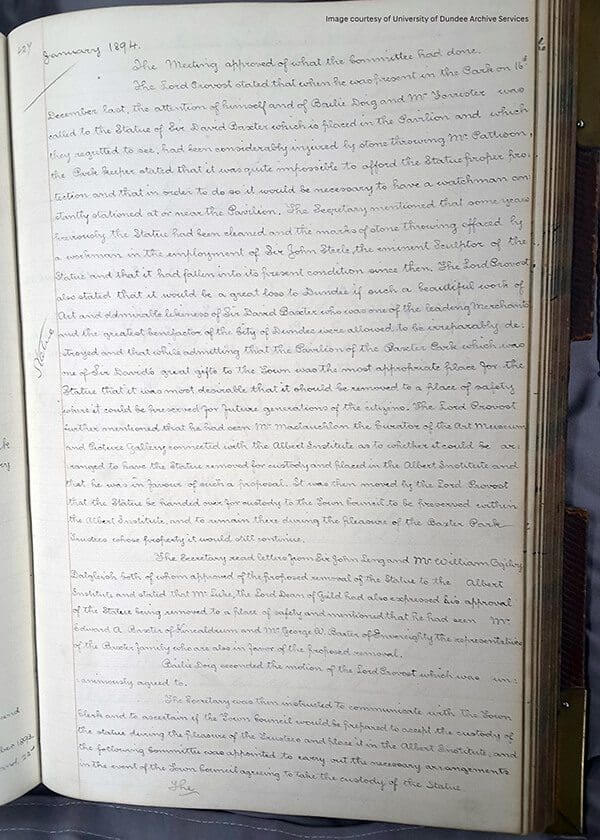 Image courtesy of University of Dundee Archive Services
224
January 1894.
The Meeting approved of what the Committee had done.
The Lord Provost stated that when he was present in the Park on 16th
December last, the attention of himself and of Bailie Doig and Mr Forrester was
called to the Statue of Sir David Baxter which is placed in the Pavilion and which
they regretted to see, had been considerably injured by stone throwing Mr Pattison,
the Park keeper stated that it was quite impossible to afford the Statue proper pro-
tection and that in order to do so it would be necessary to have a watchman con-
stantly stationed at or near the Pavilion. The Secretary mentioned that some years
previously the Statue had been cleaned and the marks of stone throwing effaced by
a workman in the employment of Sir John Steele, the eminent Sculptor of the
Statue and that it had fallen into its present condition since then. The Lord Provost
also stated that it would be a great loss to Dundee if such a beautiful work of
Art and admirable likeness of Sir David Baxter who was one of the leading Merchants
and the greatest benefactor of the City of Dundee were allowed to be irreparably de-
Statue
stroyed and that while admitting that the Pavilion of the Baxter Park which was
one of Sir David's great gifts to the Town was the most appropriate place for the
Statue that it was most desirable that it should be removed to a place of safety
where it could be preserved for future generations of the citizens. The Lord Provost
further mentioned that he had seen Mr Maclauchlan the Curator of the Art Museum
and Picture Gallery connected with the Albert Institute as to whether it could be ar-
ranged to have the Statue removed for custody and placed in the Albert Institute and
that he was in favour of such a proposal. It was then moved by the Lord Provost
that the Statue be handed over for custody to the Town Council to be preserved within
the Albert Institute, and to remain there during the pleasure of the Baxter Park
Trustees whose property it would still continue.
The Secretary read letters from Sir John Leng and Mr William Ogilvy
Dalgleish both of whom approved of the proposed removal of the Statue to the Albert
Institute and stated that Mr Luke, the Lord Dean of Guild had also expressed his approval
of the Statue being removed to a place of safety and mentioned that he had seen Mr
Edward A. Baxter of Kincaldrum and Mr George W. Baxter of Invereighty the representatives
of the Baxter family who are also in favor of the proposed removal.
Bailie Doig seconded the motion of the Lord Provost which was un-
animously agreed to.
The Secretary was then instructed to communicate with the Town
Clerk and to ascertain if the Town Council would be prepared to accept the custody of
the statue during the pleasure of the Trustees and place it in the Albert Institute, and
the following Committee was appointed to carry out the necessary arrangements
in the event of the Town Council agreeing to take the custody of the Statue
The